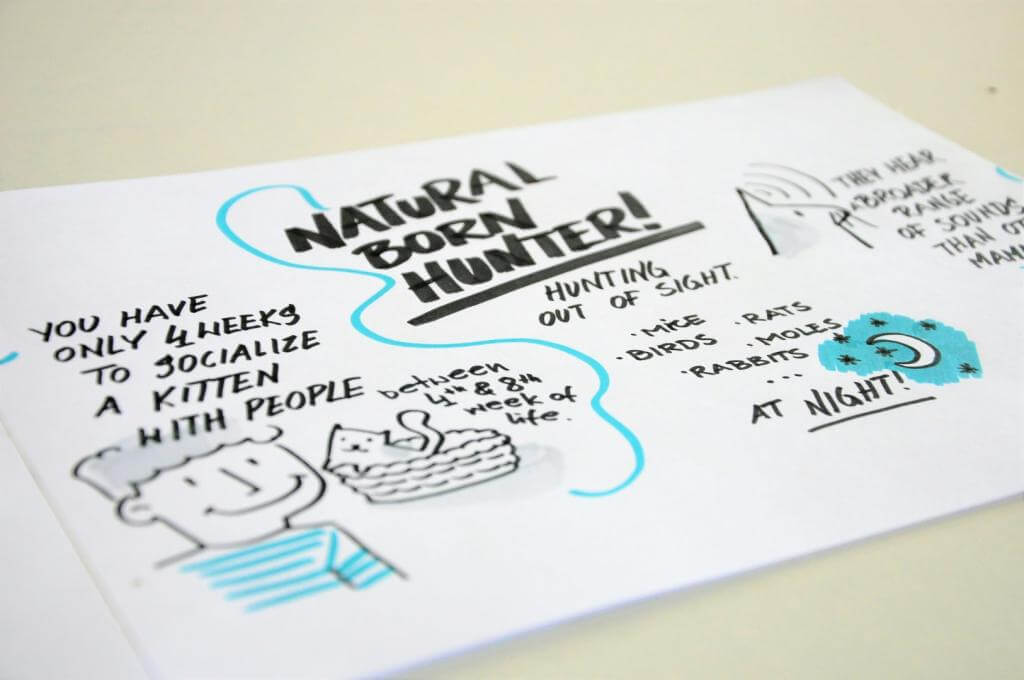 NATURAL
BORN
HUNTER!
HUNTING
OUT OF SIGHT.
· MICE
· RATS
· BIRDS
· MOLES
· RABBITS
...
AT NIGHT!
THEY HEAR
A BROADER
RANGE
OF SOUNDS
THAN
YOU HAVE
ONLY 4 WEEKS
TO SOCIALIZE
A KITTEN
WITH PEOPLE
between
4th & 8th
week of
life.